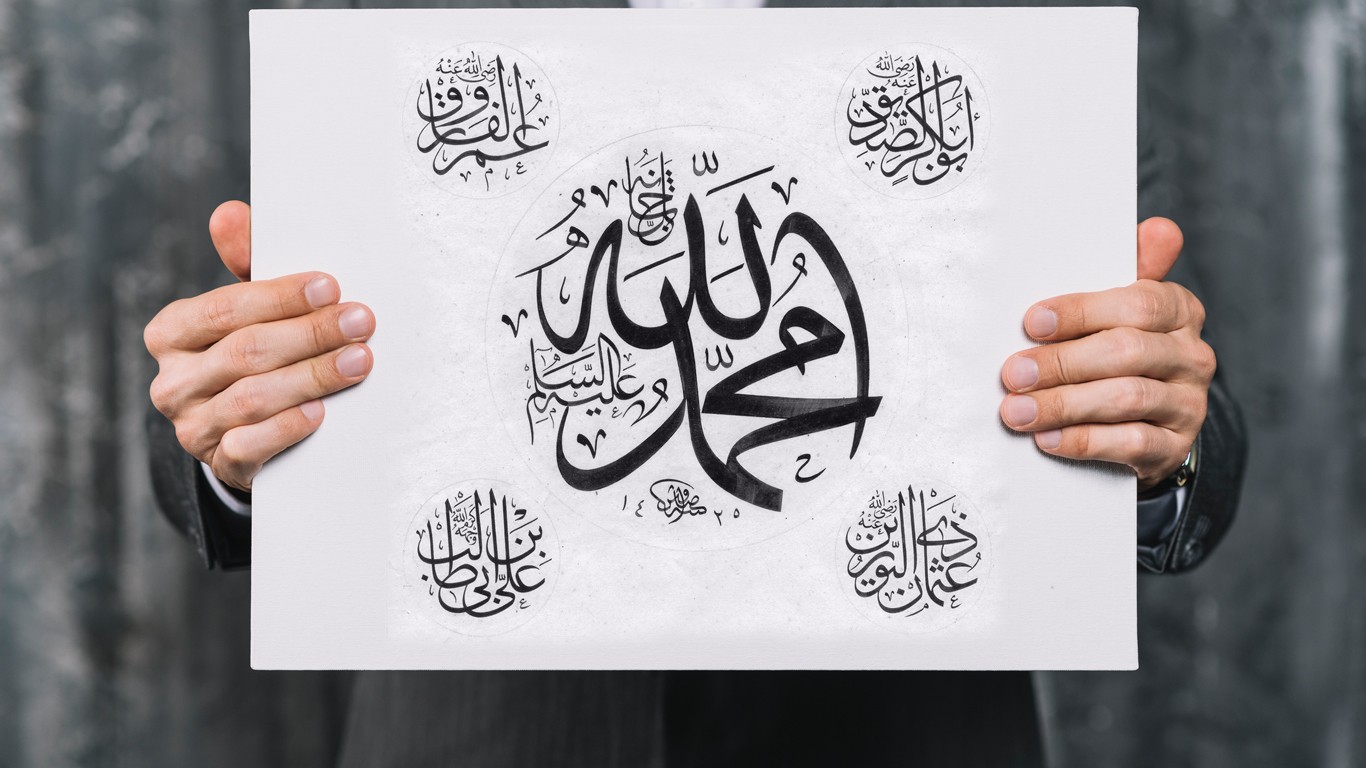 أبو بكر الصديق رضي الله عنه
عمر الفاروق رضي الله عنه
الله
محمد عليه السلام
١٤٢٥
عثمان ذي النورين رضي الله عنه
علي بن أبي طالب كرم الله وجهه